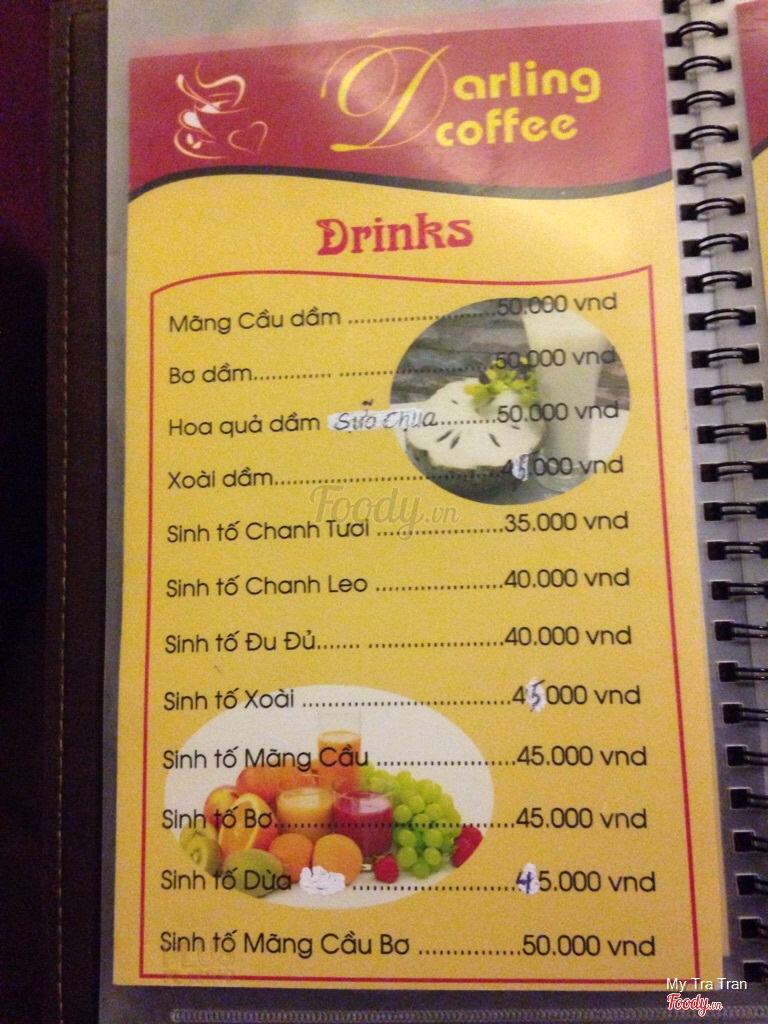 Darling
coffee
Drinks
Mãng Cầu dầm ........................50.000 vnd
Bơ dầm............ ........................50.000 vnd
Hoa quả dầm Sữa chua.........50.000 vnd
Xoài dầm...................................45.000 vnd
Sinh tố Chanh Tươi ...................35.000 vnd
Sinh tố Chanh Leo ...................40.000 vnd
Sinh tố Đu Đủ....... ....................40.000 vnd
Sinh tố Xoài ...............................45000 vnd
Sinh tố Mãng Cầu ....................45.000 vnd
Sinh tố Bơ...................................45.000 vnd
Sinh tố Dừa ........................45.000 vnd
Sinh tố Mãng Cầu Bơ ...............50.000 vnd
Foody.vn
My Tra Tran
Foody.vn